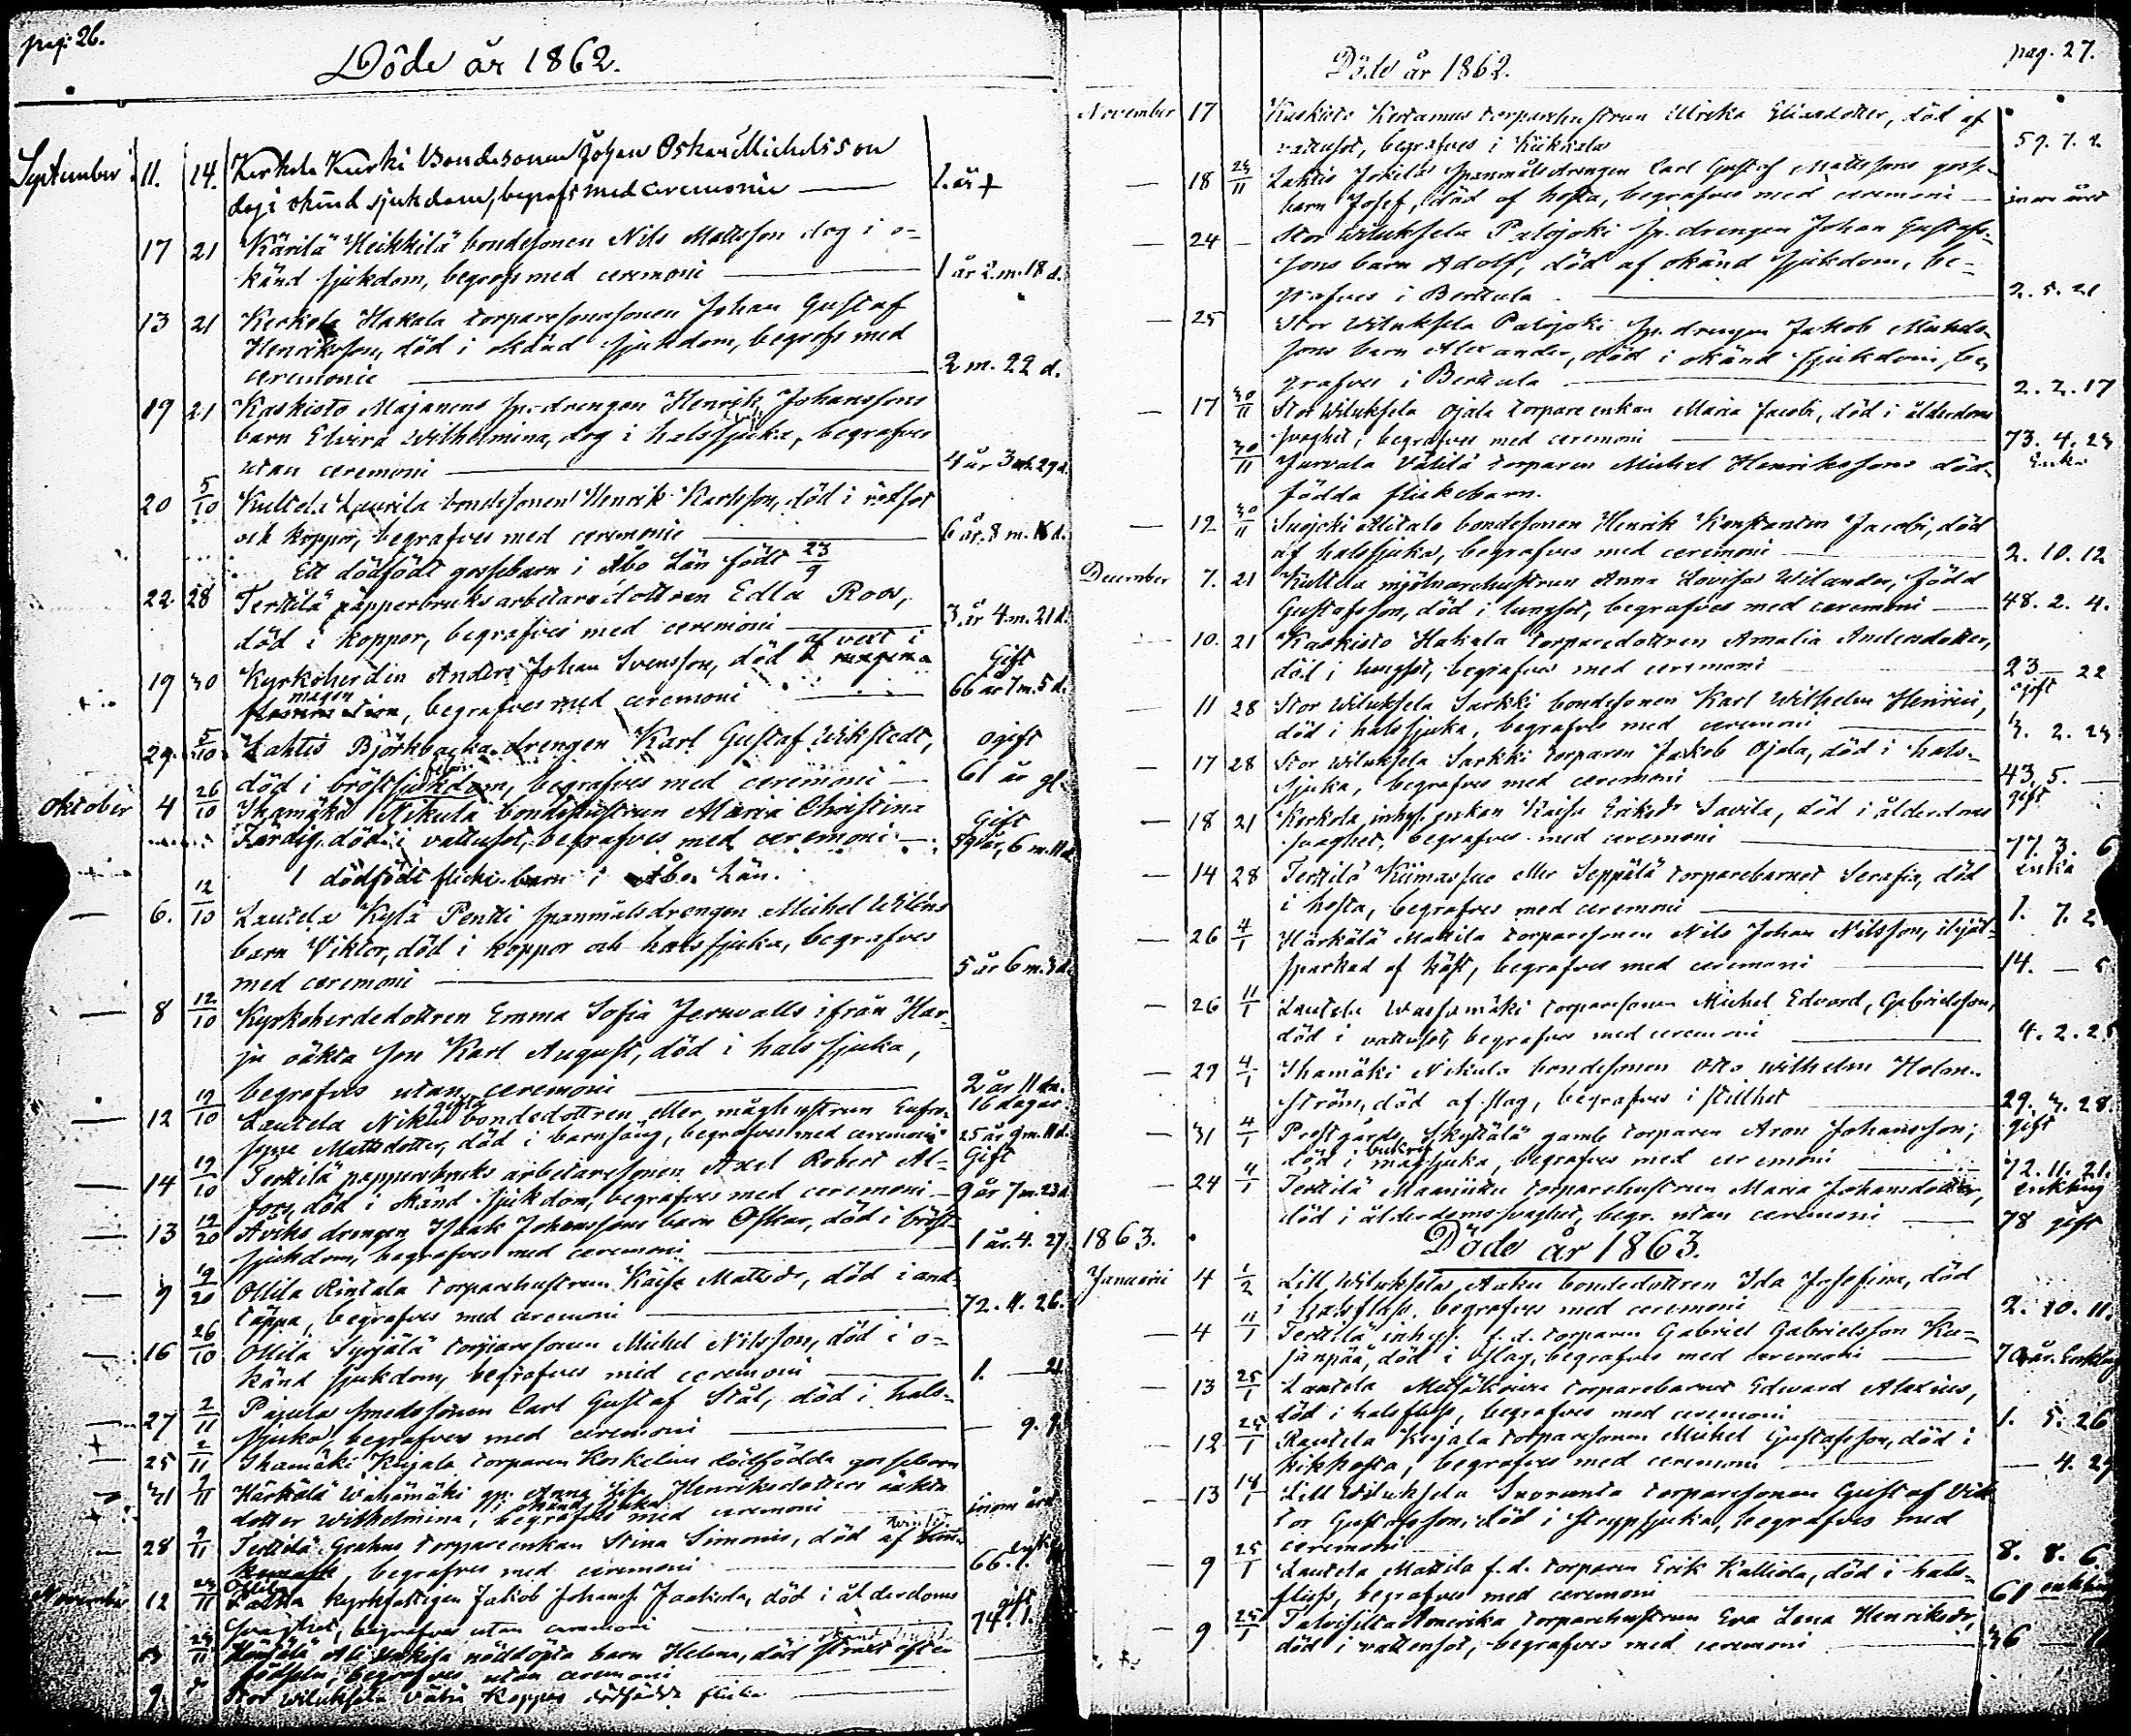 pag: 26.
Döde år 1862.
September 11. 14. Kerkola Kurki Bondesonen Johan Oskar Michelsson
dog i okänd sjukdom, begrofs med ceremonie — 1. år +
17 21 Kärilä Heikkilä bondesonen Nils Mattsson dog i o-
känd sjukdom, begrofs med ceremoni — 1 år 2. m. 18 d.
13 21 Kerkola Hakala torparesonasonen Johan Gustaf
Henriksson, död i okänd sjukdom, begrofs med
ceremonie — 2 m. 22 d.
19 21 Kaskisto Majanens sp. drengen Henrik Johanssons
barn Elvira Wilhelmina, dog i halssjuka, begrafves
utan ceremoni — 4 år 3 m. 29 d.
20 5/10 Kultela Laurila bondesonen Henrik Karlsson, död i rötsot
och koppor, begrafves med ceremonie — 6 år. 8 m. d.
Ett dödfödt gossebarn i Åbo Län födt 23/9
22 28 Terttilä papperbruksarbetaredottren Edla Roos,
död i koppor, begrafves med ceremoni — 3. år 4. m. 21 d.
19 30 Kyrkoherden Anders Johan Svensson, död af vert i Gift
magen, begrafves med ceremoni — 66 år 7 m. 5 d.
29. 5/10 Lahtis Björkbacka drengen Karl Gustaf Wikstedt, ogift
död i bröst, begrafves med ceremoni — 61 år gl.
Oktober 4 26/10 Ihamäki Nikula bondehustrun Maria Christina Gift
död i vattusot, begrafves med ceremoni — år, 6 m. 11 d.
1 dödfödt flickebarn i Åbo Län.
— 6. 12/10 Lautela Kylä Pentti spanmålsdrengen Michel Wilens
barn Viktor, död i koppor och halssjuka, begrafves
med ceremoni — 5 år 6 m. 3 d.
— 8 12/10 Kyrkoherdedottren Emma Sofia Jernvalls ifrån Har-
ju oäkta son Karl August, död i hals sjuka,
begrafves utan ceremoni — 2 år 11 m.
16 dagar
— 12 19/10 Lautela Niku gifta bondedottren eller måghustrun Eufro-
syne Mattsdotter, död i barnsäng, begrafves med ceremoni 25 år 9 m. 11 d.
Gift
— 14 19/10 Terttilä pappersbruks arbetaresonen Axel Robert Al-
fors, död i okänd sjukdom, begrafves med ceremoni — 9 år 7 m. 23 d.
— 13 19/20 Åviks drengen Isaak Johanssons barn Oskar, död i bröst-
sjukdom, begrafves med ceremoni — 1 år. 4. 27.
— 9 19/20 Ollila Rintala torparehustrun Kaisa Mattsdr, död i and-
täppa, begrafves med ceremoni — 72. 11. 26.
— 16 26/10 Ollila Syrjälä torparesonen Michel Nilsson, död i o-
känd sjukdom, begrafves med ceremoni — 1. — 21
— 27 2/11 Pajula smedssonen Carl Gustaf Stål, död i hals-
sjuka, begrafves med ceremoni — 9. 9
— 25 2/11 Ihamäki Kujala torparen Koskelins dödfödda gossebarn
31 2/11 Härkälä Wahämäki Anna Henriksdotters oäkta
dotter Wilhelmina, i okänd sjuka begrafves med ceremoni — inom året
— 28 9/11 Terttilä Grahns torpareenkan Stina Simonis, död af
begrafves med ceremoni — 66. 1.
November 12 23/11 Ollila kyrkfattigen Jakob Johanss. Jaakola, död i ålderdoms gift
svaghet, begrafves utan ceremoni — 74. 1.
13 23/11 Härkälä Ali nöddöpta barn Helena, död strax efter
födseln, begrafves utan ceremoni
9 Stor Wiluksela Koppas dödfödda flicka

pag. 27.
Döde år 1862.
November 17 Kaskisto Kestamus torparehustrun Ulrika Eliasdotter, död af
vattusot, begrafves i Kiikkala — 59. 7. 2.
— 18 23/11 Lahtis Jokila spanmålsdrengen Carl Gustaf Mattssons gosse-
barn Josef, död af hosta, begrafves med ceremoni — inom året
— 24 — Stor Wiluksela Palojoki sp. drengen Johan Gustafs-
sons barn Adolf, död af okänd sjukdom, be-
grafves i Berttula — 2. 5. 21
— 25 Stor Wiluksela Palojoki sp. drengen Jakob
sons barn Alexander, död i okänd sjukdom, be-
grafves i Berttula — 2. 2. 17
— 17 30/11 Stor Wiluksela Ojala torpare enkan Maria Jacobi, död i ålderdoms
svaghet, begrafves med ceremoni — 73. 4. 23
Enka
30/11 Jurvala Välilä torparen Michel Henrikssons död-
födda flickebarn.
— 12 30/11 Suojoki Alitalo bondesonen Henrik Konstantin Jacobi, död
af halssjuka, begrafves med ceremoni — 2. 10. 12
December 7. 21 Kultela mjölnarehustrun Anna Lovisa Wilander, född
Gustafsson, död i lungsot, begrafves med ceremoni — 48. 2. 4.
10. 21 Kaskisto Hakala torparedottren Amalia Andersdotter,
död i lungsot, begrafves med ceremoni — 23 — 22
ogift
— 11 28 Stor Wiluksela Sarkki bondesonen Karl Wilhelm Henrici,
död i halssjuka, begrafves med ceremoni — 3. 2. 23
— 17 28 Stor Wiluksela Sarkki torparen Jakob Ojala, död i hals-
sjuka, begrafves med ceremoni — 43. 5. —
gift
— 18 21 Kerkola inhys. enkan Kaisa Eriksdr Savila, död i ålderdoms
svaghet, begrafves med ceremoni — 77. 3. 6
enka
— 14 28 Terttilä Kiimassuo eller Seppälä torparebarnet Serafia, död
i hosta, begrafves med ceremoni — 1. 7. 2
— 26 4/1 Härkälä Mattila torparesonen Nils Johan Nilsson, ihjäl-
sparkad af häst, begrafves med ceremoni — 14. — 5
— 26 11/1 Lautela Wassamäki torparesonen Michel Edvard, Gabrielsson,
död i vattusot, begrafves med ceremoni — 4. 2. 25
— 29 4/1 Ihamäki Nikula bondesonen Otto Wilhelm Holm-
ström, död af slag, begrafves i stillhet — 29. 3. 28.
gift
— 31 4/1 Prestgårds Skyttälä gamle torparen Aron Johansson;
död i sjuka, begrafves med ceremoni — 72. 11. 21.
enkling
— 24 4/1 Terttilä torparehustrun Maria Johansdotter,
död i ålderdomssvaghet, begr. utan ceremoni — 78 gift
1863.
Döde år 1863.
Januari 4 1/2 Lill Wiluksela Aaku bondedottren Ida Josefina, död
i halsfluss, begrafves med ceremoni — 2. 10. 11.
— 4 11/1 Terttilä inhys. f. d. torparen Gabriel Gabrielsson Ku-
janpää, död i slag, begrafves med ceremoni — 70 år. Enkling
— 13 25/1 Lautela torparebarnet Edward Alexius,
död i halsfluss, begrafves med ceremoni — 1. 5. 26
— 12 25/1 Rautela Kujala torparesonen Michel Gustafsson, död i
kikhosta, begrafves med ceremoni — 4. 29
— 13 18/1 Lill Wiluksela Suoranta torparesonen Gustaf Vik-
tor Gustafsson, död i strypsjuka, begrafves med
ceremoni — 8. 8. 6
— 9 25/1 Lautela Mattila f. d. torparen Erik Kalliola, död i hals-
fluss, begrafves med ceremoni — 61 enkling
— 9 25/1 Talvisilta Amerika torparehustrun Eva Lena Henriksdr,
död i vattensot, begrafves med ceremoni — 36 —